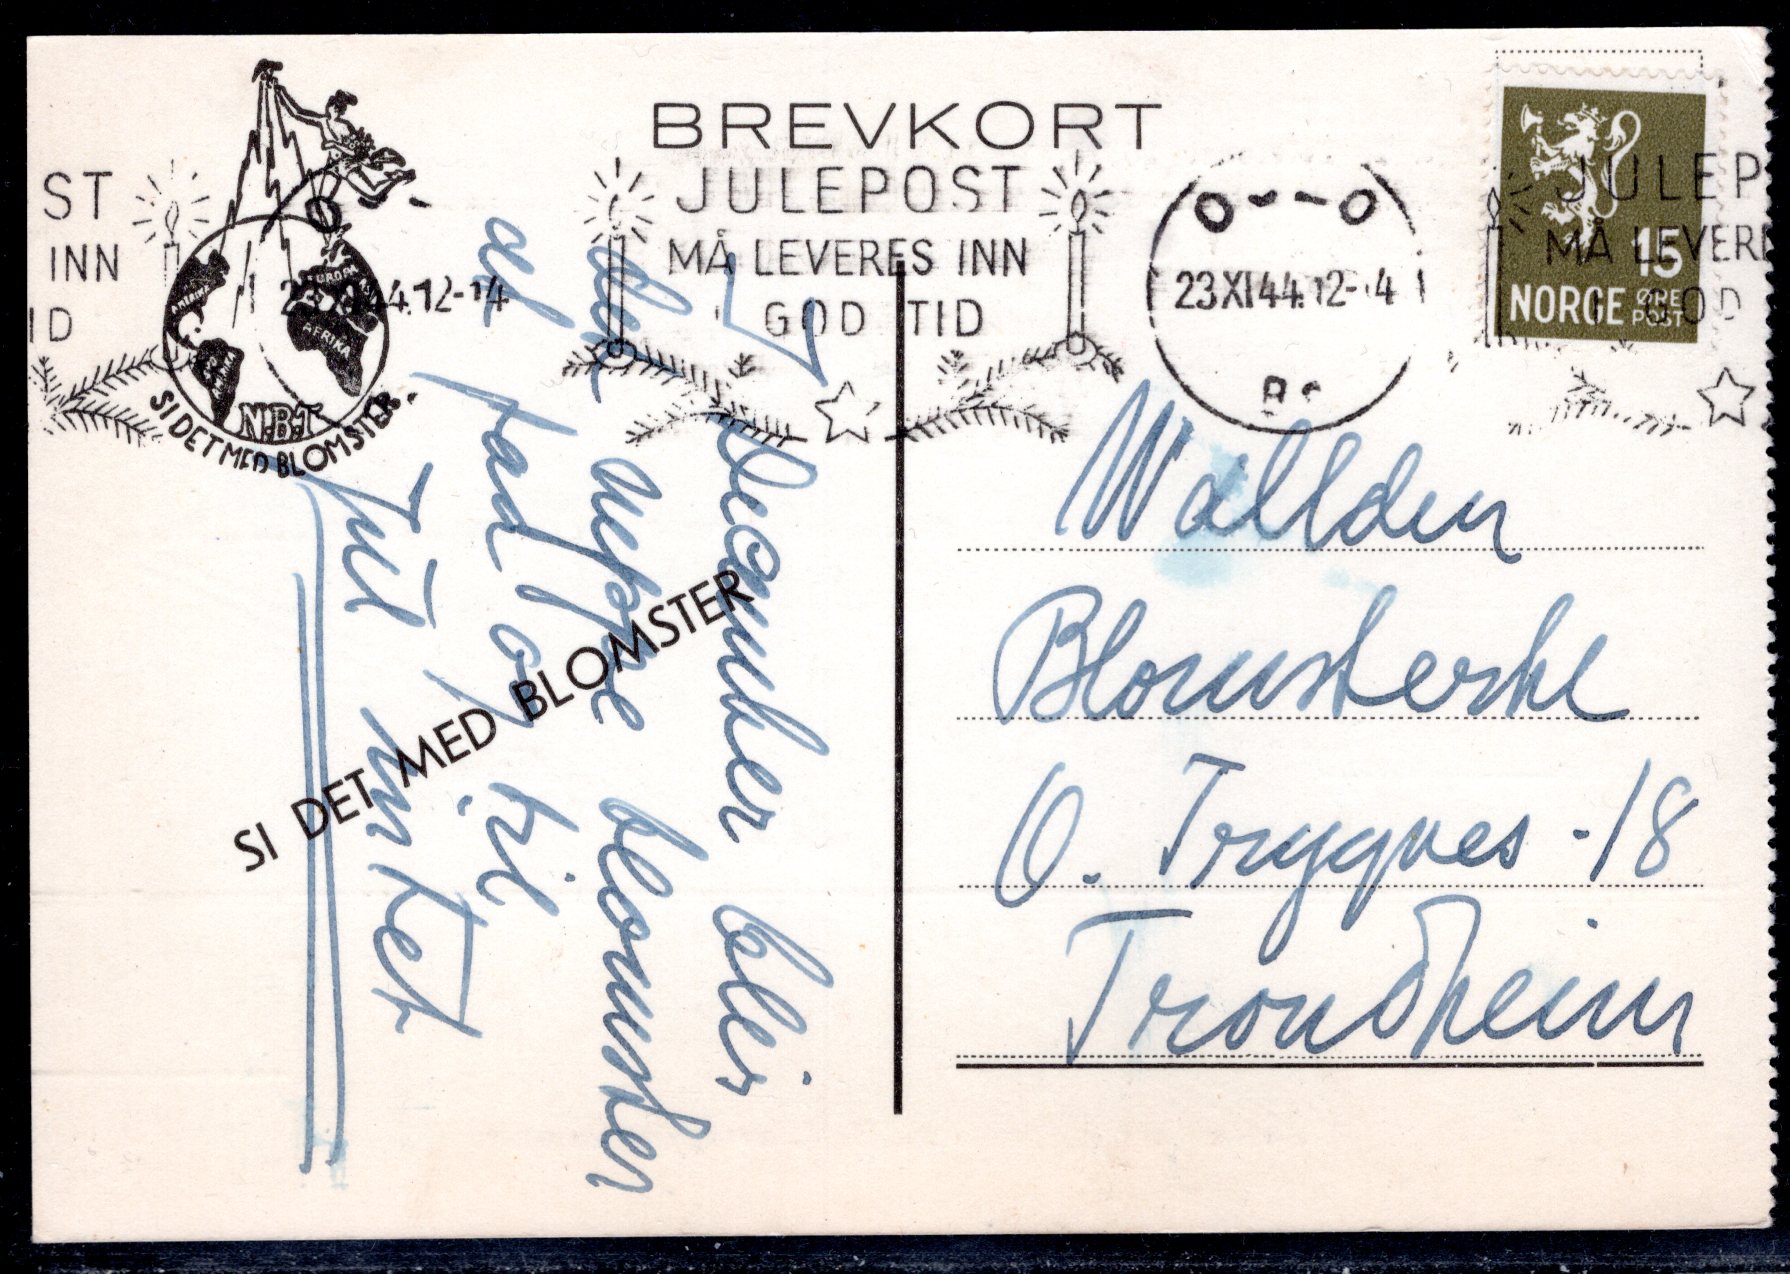 BREVKORT
ST
INN
ID
JULEPOST
MÅ LEVERES INN
GOD TID
23 XI 44. 12-14
O--O
23 XI 44. 12-14
JULEP
MÅ LEVERE
GOD
15
NORGE ØRE
POST
EUROPA
AFRIKA
N.B.T
SI DET MED BLOMSTER.
SI DET MED BLOMSTER
I
December blir
det neppe blomster
at faa til
Jul
Wallden
Blomsterhl
O. Trygves - 18
Trondheim